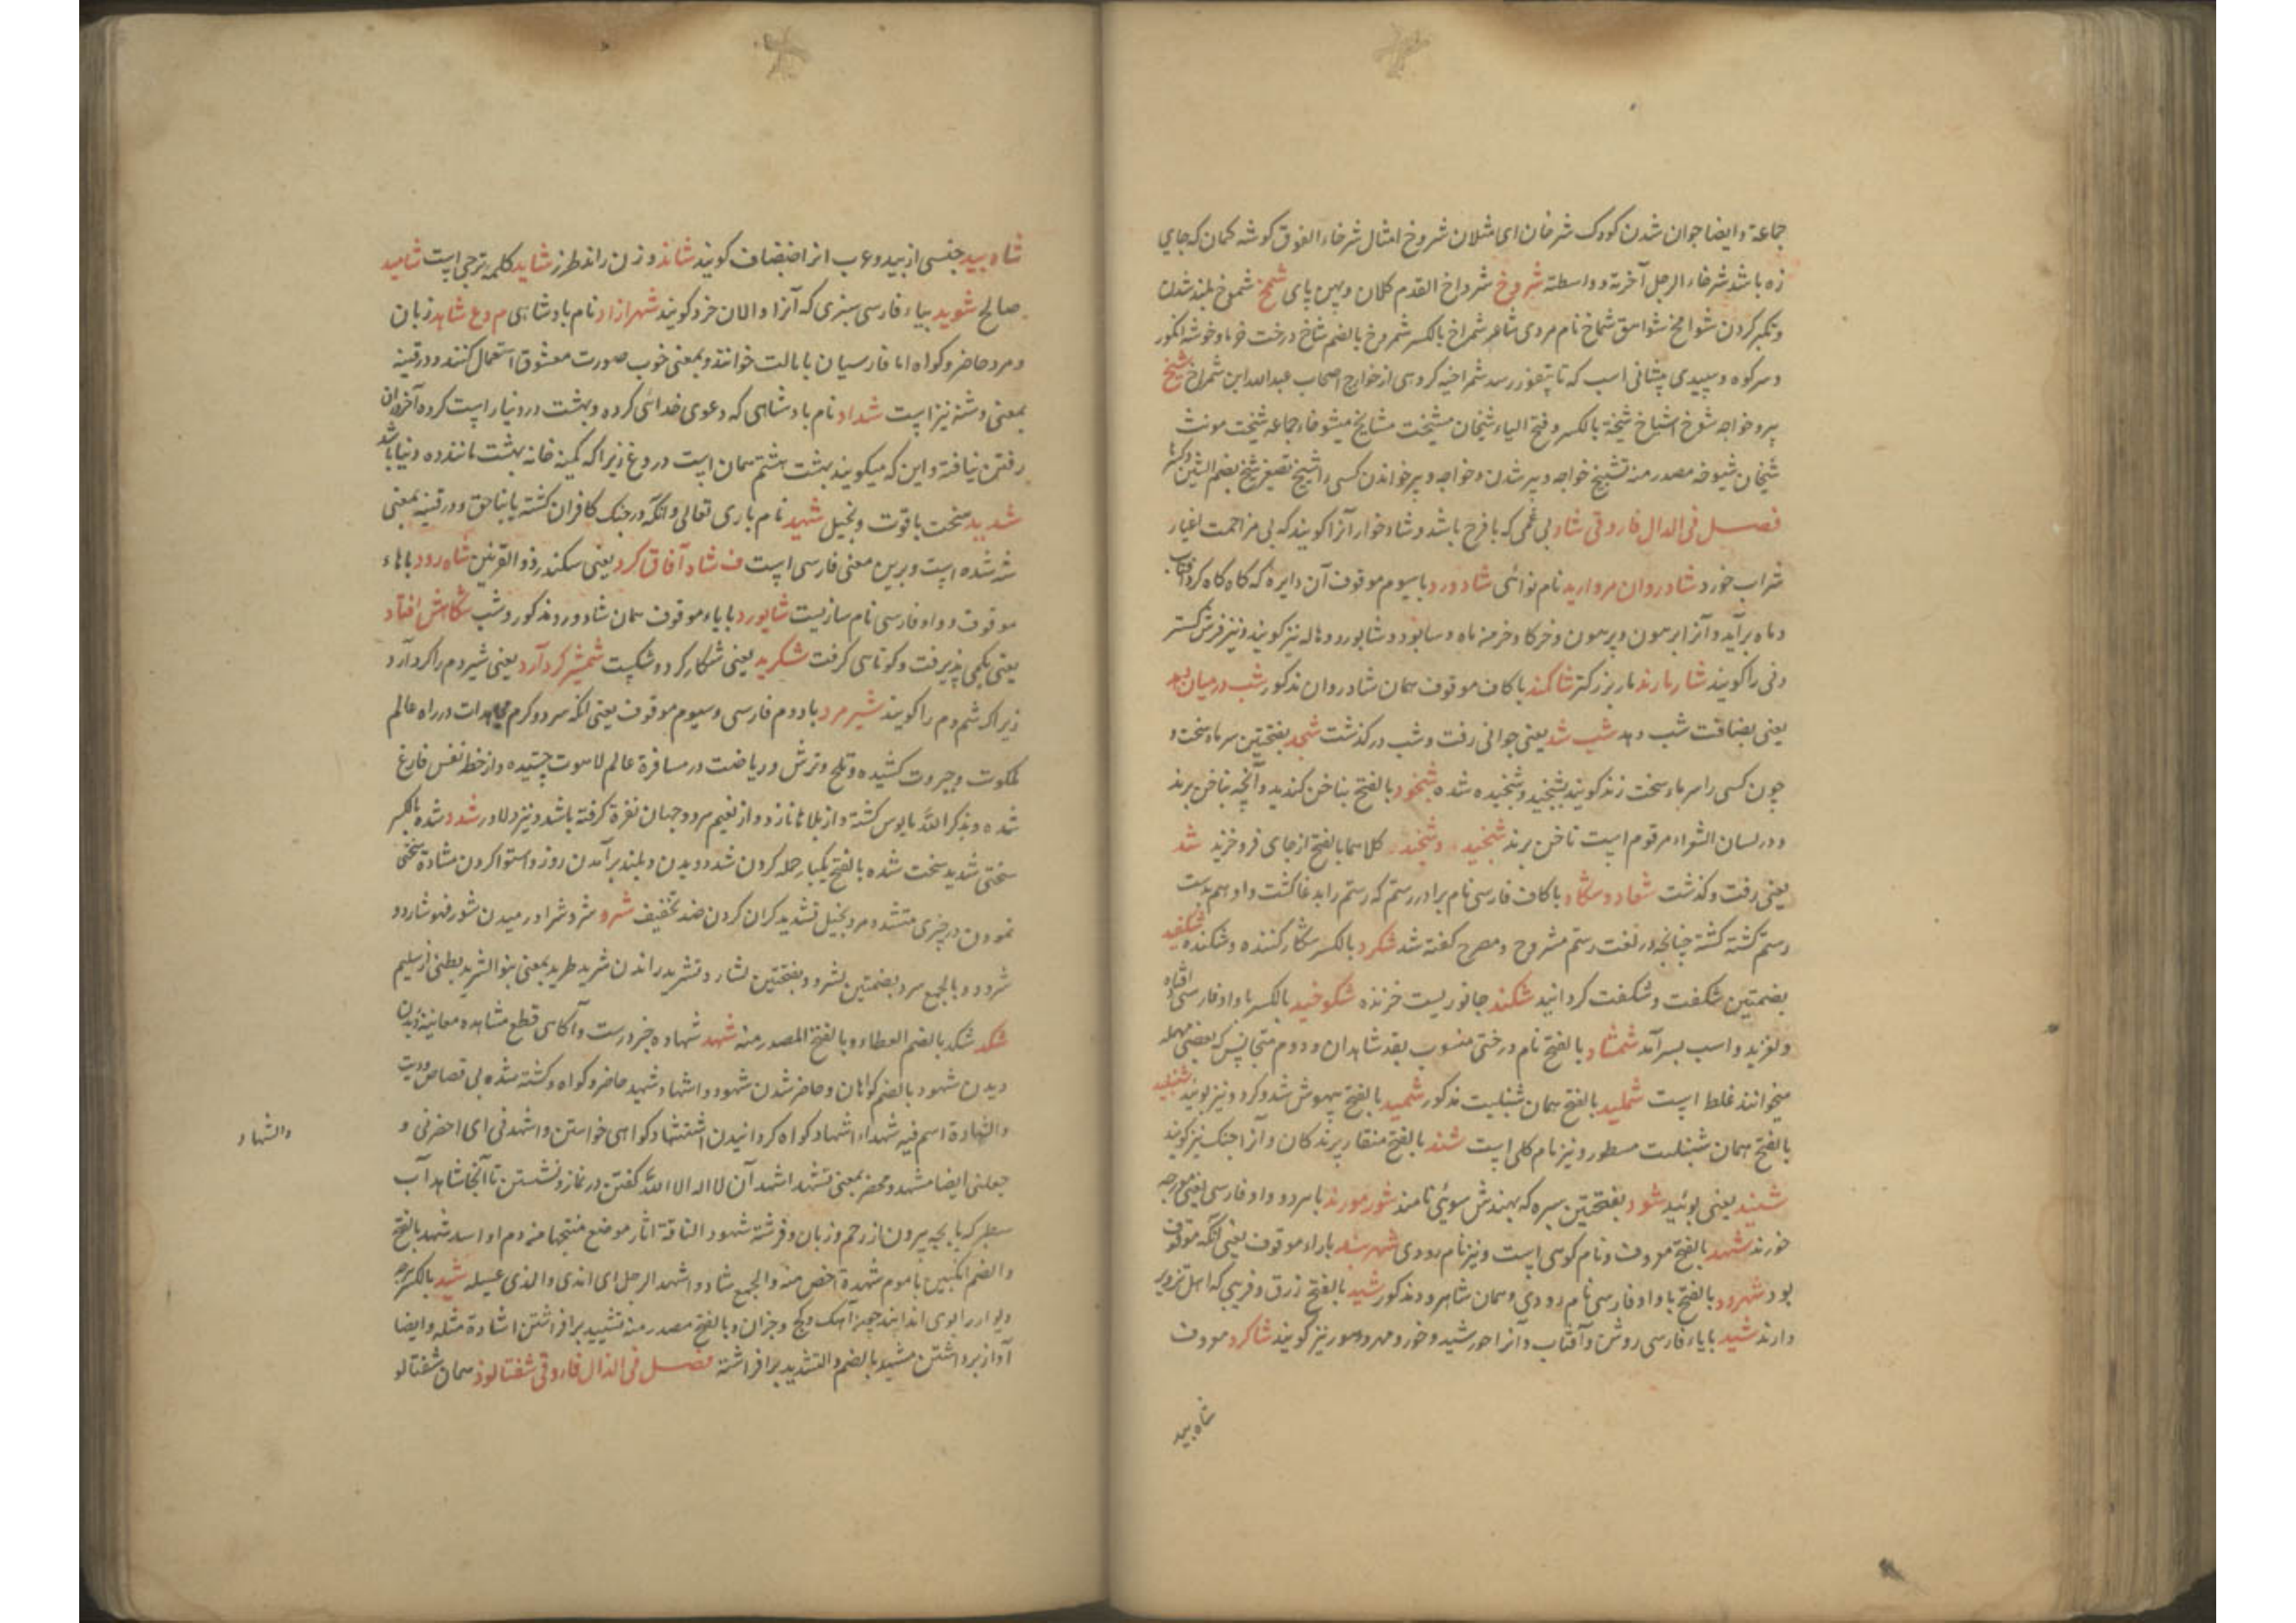 جماعة و ایضا جوان شدن کودک شرخان ای مثلان شروخ امثال شرخاء الفوق گوشه کمان که جای
زه باشد شرخاء الرحل آخرته و واسطته شروخ شرداخ القدم کلان و پهن پای شمخ شموخ بلند شدن
و تکبر کردن شوامخ شواهق شماخ نام مردی شاعر شمراخ بالکسر شمروخ بالضم شاخ درخت خرما و خوشه انگور
و سر کوه و سپیدی پیشانی اسب که تا پتفوز رسد شمراخیه گروهی از خوارج اصحاب عبدالله ابن شمراخ شیخ
پیر و خواجه شیوخ اشیاخ شیخة بالکسر و فتح الیاء شیخان مشیخت مشایخ مشیوخاء جماعه شیخت مونث
شیخان شیوخه مصدر منه تشییخ خواجه و پیر شدن و خواجه و پیر خواندن کسی را شییخ تصغیر شیخ بضم الشین و کسرها
فصل فی الدال فاروقی شاد بی غمی که با فرح باشد و شاد خوار آنرا گویند که بی مزاحمت اغیار
شراب خورد شادروان مروارید نام نوائی شادورد با سیوم موقوف آن دایره که گاه گاه گرد آفتاب
و ماه برآید و آنرا برهون و پرهون و خرگاه و خرمن ماه و سابود و شابورد و هاله نیز گویند و نیز فرش گستر
دنی را گویند شاربارند بار بزرگتر شاکمند با کاف موقوف همان شادروان مذکور شب در میان بهد
یعنی بضافت شب دهد شب شد یعنی جوانی رفت و شب در گذشت شجد بفتحتین سرماء سخت و
چون کسی را سرماء سخت زند گویند بشجید و شجیده شده شخود بالفتح بناخن کندید و آنچه بناخن برند
و در لسان الشعراء مرقوم است ناخن برند شخید و شخند کلاهما بالفتح از جای فرو خزید شد
یعنی رفت و گذشت شغاد و شکاد با کاف فارسی نام برادر رستم که رستم را بدغا کشت و او هم بدست
رستم کشته گشته چنانچه در لغت رستم مشروح و مصرح گفته شد شکرد بالکسر شکار کننده و شکنده شکفید
بضمتین شکفت و شکفت گردانید شکند جانوریست خزنده شکوخید بالکسر با واو فارسی افتاد
و لغزید و اسب بسر آمد شمشاد بالفتح نام درختی منسوب بقد شاهدان و دوم متجانس که بعضی مهمله
میخوانند غلط است شملید بالفتح همان شنبلیت مذکور شمید بالفتح بیهوش شد و کرد و نیز بویید شنبلید
بالفتح همان شنبلیت مسطور و نیز نام گلی است شند بالفتح منقار پرندگان و آنرا جنک نیز گویند
شنید یعنی بوئید شود بفتحتین سبره که بهندش سوئی نامند شور مورند با هر دو واو فارسی یعنی مورچه
خورند شهد بالفتح معروف و نام کوهی است و نیز نام رودی شهربند باراء موقوف یعنی آنکه موقوف
بود شهرود بالفتح با واو فارسی نام رودی و همان شاهرود مذکور شید بالفتح زرق و فریبی که اهل تزویر
دارند شید بایاء فارسی روشن و آفتاب و آنرا خورشید و خور و مهر و هور نیز گویند شاگرد معروف
شاه بید
شاه بید جنسی از بید و عرب انرا خضاف گویند شاند و زن راند طرز شاید کلمه ترجی است شاهید
صالح شوید بیاء فارسی سبزی که آنرا والان خرد گویند شهرازاد نام بادشاهی م وع شاهد زبان
و مرد حاضر و گواه اما فارسیان بابالت خوانند و بمعنی خوب صورت معشوق استعمال کنند و در قنیه
بمعنی وشنه نیز است شداد نام بادشاهی که دعوی خدائی کرده و بهشت در دنیا راست کرده آخر در آن
رفتن نیافته و این که میگویند بهشت هشتم همان است دروغ زیرا که کمینه خانه بهشت مانند ده دنیا باشد
شدید سخت باقوت و بخیل شهید نام باری تعالی و آنکه در جنگ کافران کشته یا بناحق و در قنیه بمعنی
شد شده است و برین معنی فارسی است ف شاد آفاق گرد یعنی سکندر ذو القرنین شاه رود باهاء
موقوف و واو فارسی نام سازیست شایورد بایاء موقوف همان شادورد مذکور و شب شکاهش افتاد
یعنی بکمی پذیرفت و کوتاهی گرفت شکرید یعنی شکار کرد و شکست شمشیر گرد آرد یعنی شیر دم را گرد آرد
زیرا که شم دم را گویند شیرمرد با دوم فارسی و سیوم موقوف یعنی آنکه سرد و گرم مجاهدات در راه عالم
ملکوت و جبروت کشیده و تلخ و ترش و ریاضت در مسافرة عالم لاهوت چشیده و از خط نفس فارغ
شده و بذکر الله مایوس گشته و از بلاها نازد و از نعیم هر دو جهان نفرة گرفته باشد و نیز دلاور شدد شده بالکسر
سختی شدید سخت شده بالفتح یکبار حمله کردن شد دویدن و بلند برآمدن روز و استوار کردن مشادة سختی
نمودن در چیزی متشدد مرد بخیل تشدید گران کردن ضد تخفیف شرد شرد و شراد رمیدن شور فهو شارد و
شرود و بالجمع سرد بضمتین نشرود و بفتحتین نشارد و تشرید راندن شرید طرید بمعنی بنو الشرید بطنی از سلیم
شکد شکد بالضم العطاء و بالفتح المصدر منه شهد شهاده خبر درست و آگاهی قطع مشاهده معاینة دیدن
دیدن شهود بالضم گواهان و حاضر شدن شهود و اشهاد شهید حاضر و گواه و کشته شده بی قصاص و دیت
والشهادة اسم فیه شهداء اشهاد گواه گردانیدن استشهاد گواهی خواستن و اشهدنی ای احضرنی و
والشهاد
جعلنی ایضا مشهد و محضر بمعنی تشهد اشهد آن لا اله الا الله گفتن در نماز و نشستن تا آنجا شاهد آب
سطبر که با بچه بیرون از رحم و زبان و فرشته شهود الناقة اثار موضع منتجها من دم او اسد شهد بالفتح
والضم انگبین با موم شهدة اخص منه والجمع شهاد و اشهد الرجل ای اندی والمذی عسیله شید بالکسر هرچه
دیوار را بوی اندایند چون آهک و گچ و جز آن و بالفتح مصدر منه تشیید برافراشتن اشادة مثله و ایضا
آواز برداشتن مشید بالضم والتشدید برافراشته فصل فی الذال فاروقی شفتالوذ همان شفتالو